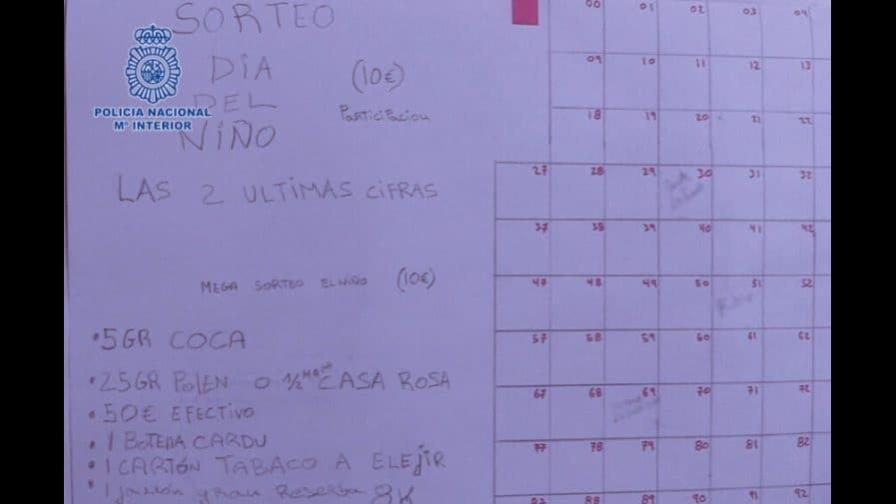 SORTEO
DIA
DEL
NIÑO
(10€)
PARTICIPACION
POLICIA NACIONAL
Mº INTERIOR
LAS 2 ULTIMAS CIFRAS
MEGA SORTEO EL NIÑO (10€)
• 5GR COCA
• 25GR POLEN O 1/2 CASA ROSA
• 50€ EFECTIVO
• 1 BOTELLA CARDU
• 1 CARTÓN TABACO A ELEJIR
• 1 Jamón gran Reserva 8K
00 01 02 03 04
09 10 11 12 13
18 19 20 21 22
27 28 29 30 31 32
37 38 39 40 41 42
47 48 49 50 51 52
57 58 59 60 61 62
67 68 69 70 71 72
77 78 79 80 81 82
88 89 90 91 92